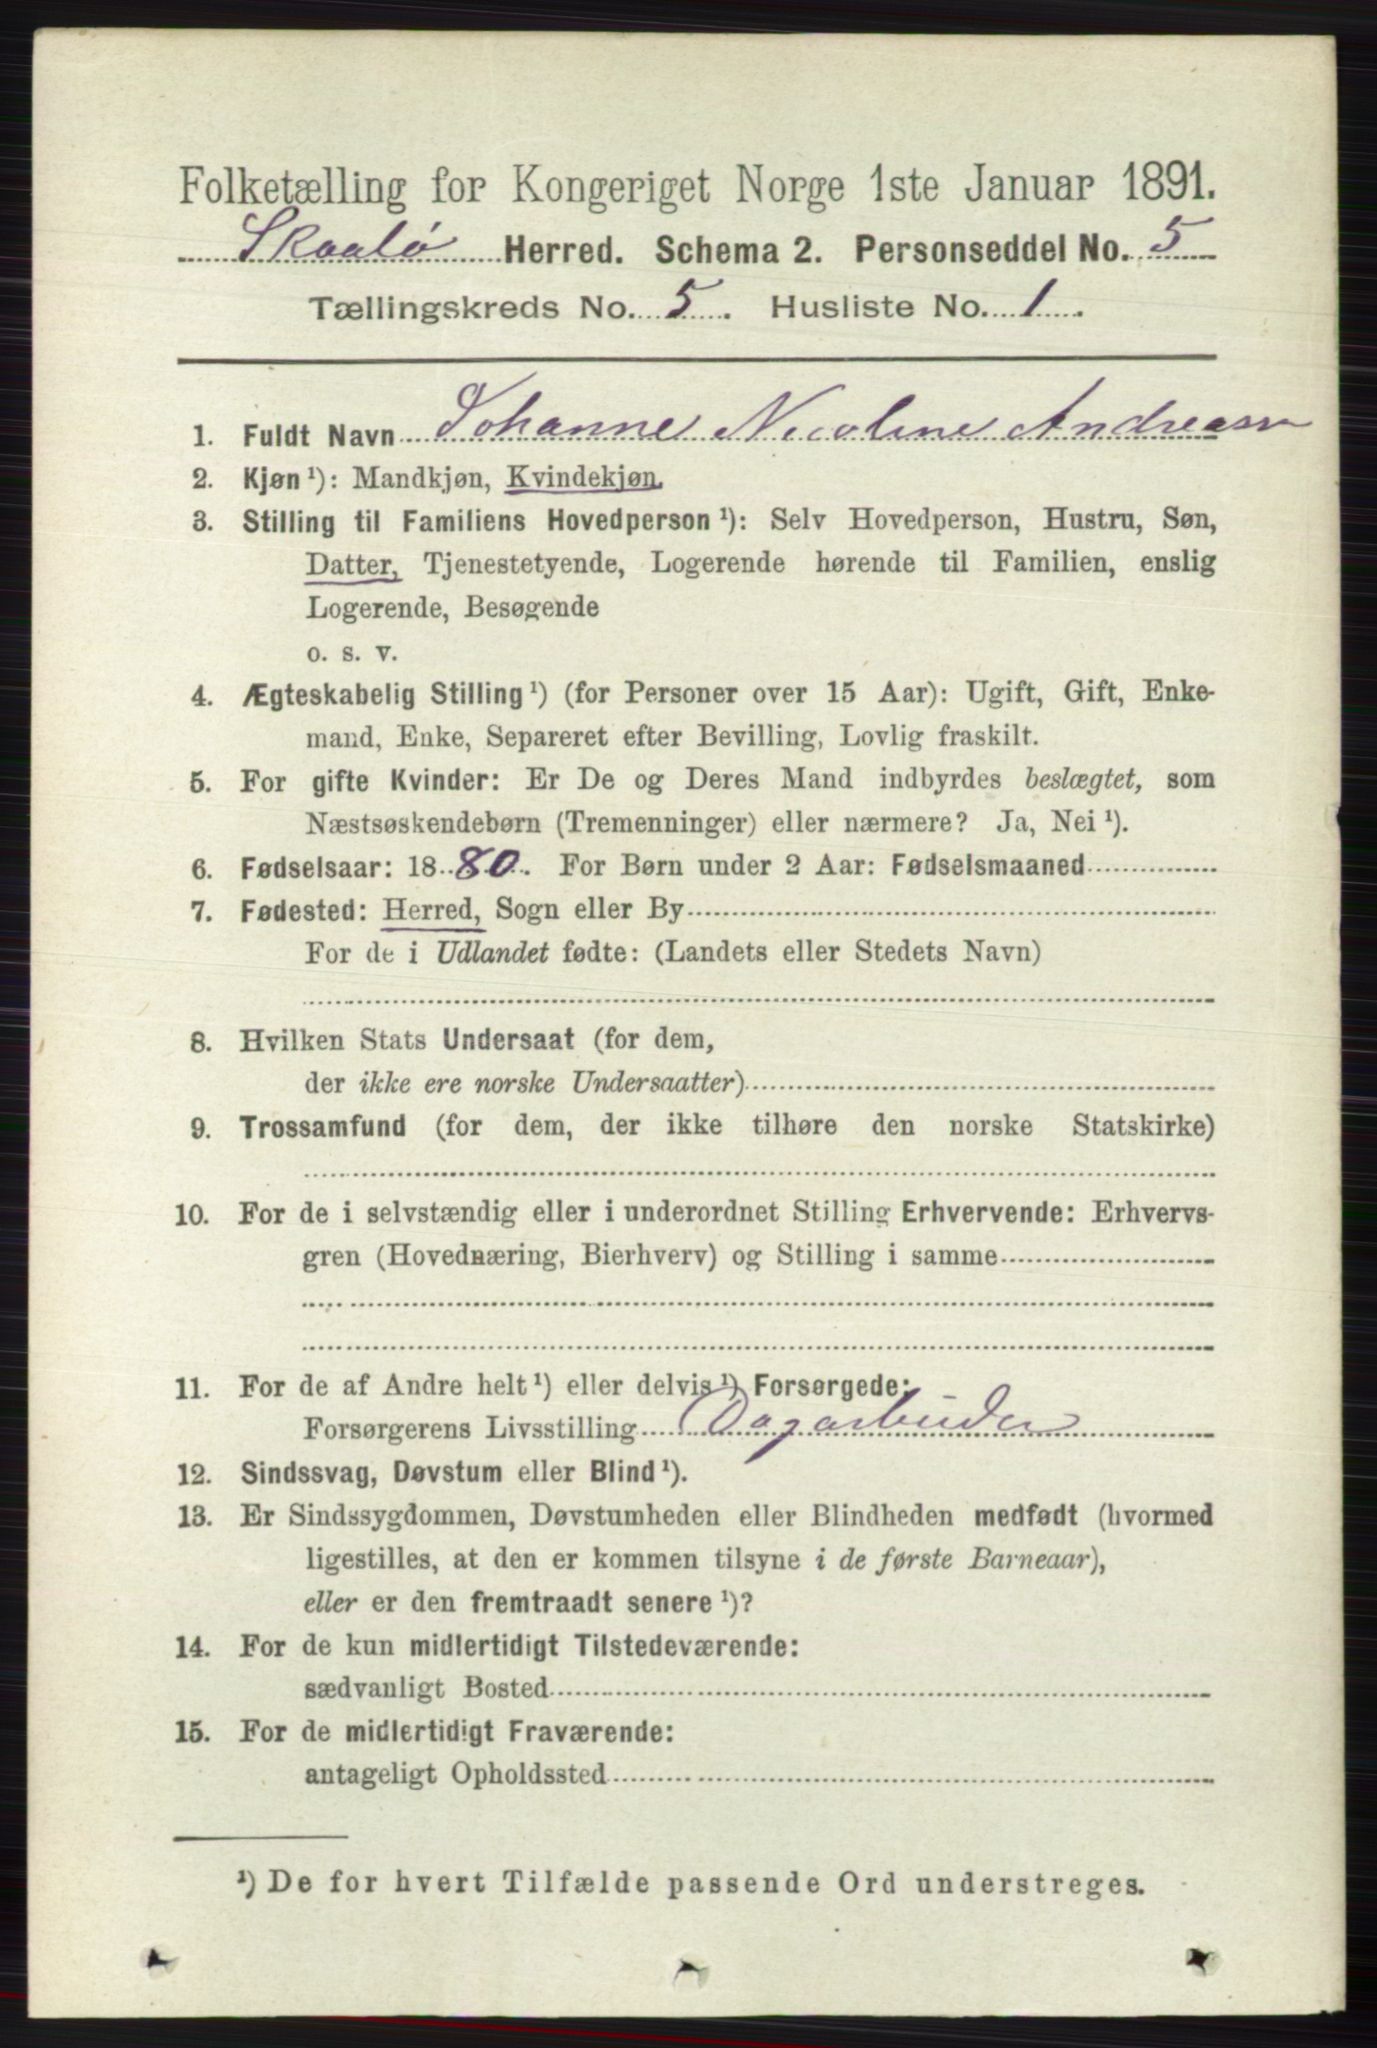 Folketælling for Kongeriget Norge 1ste Januar 1891.
Skaalø Herred. Schema 2. Personseddel No. 5
Tællingskreds No. 5. Husliste No. 1.
1. Fuldt Navn Johanne Nicoline Andreassn
2. Kjøn ¹): Mandkjøn, Kvindekjøn.
3. Stilling til Familiens Hovedperson ¹): Selv Hovedperson, Hustru, Søn,
Datter, Tjenestetyende, Logerende hørende til Familien, enslig
Logerende, Besøgende
o. s. v.
4. Ægteskabelig Stilling ¹) (for Personer over 15 Aar): Ugift, Gift, Enke-
mand, Enke, Separeret efter Bevilling, Lovlig fraskilt.
5. For gifte Kvinder: Er De og Deres Mand indbyrdes beslægtet, som
Næstsøskendebørn (Tremenninger) eller nærmere? Ja, Nei ¹).
6. Fødselsaar: 1880. For Børn under 2 Aar: Fødselsmaaned
7. Fødested: Herred, Sogn eller By
For de i Udlandet fødte: (Landets eller Stedets Navn)
8. Hvilken Stats Undersaat (for dem,
der ikke ere norske Undersaatter)
9. Trossamfund (for dem, der ikke tilhøre den norske Statskirke)
10. For de i selvstændig eller i underordnet Stilling Erhvervende: Erhvervs-
gren (Hovednæring, Bierhverv) og Stilling i samme
11. For de af Andre helt ¹) eller delvis ¹) Forsørgede:
Forsørgerens Livsstilling Dagarbeider
12. Sindssvag, Døvstum eller Blind ¹).
13. Er Sindssygdommen, Døvstumheden eller Blindheden medfødt (hvormed
ligestilles, at den er kommen tilsyne i de første Barneaar),
eller er den fremtraadt senere ¹)?
14. For de kun midlertidigt Tilstedeværende:
sædvanligt Bosted
15. For de midlertidigt Fraværende:
antageligt Opholdssted
¹) De for hvert Tilfælde passende Ord understreges.